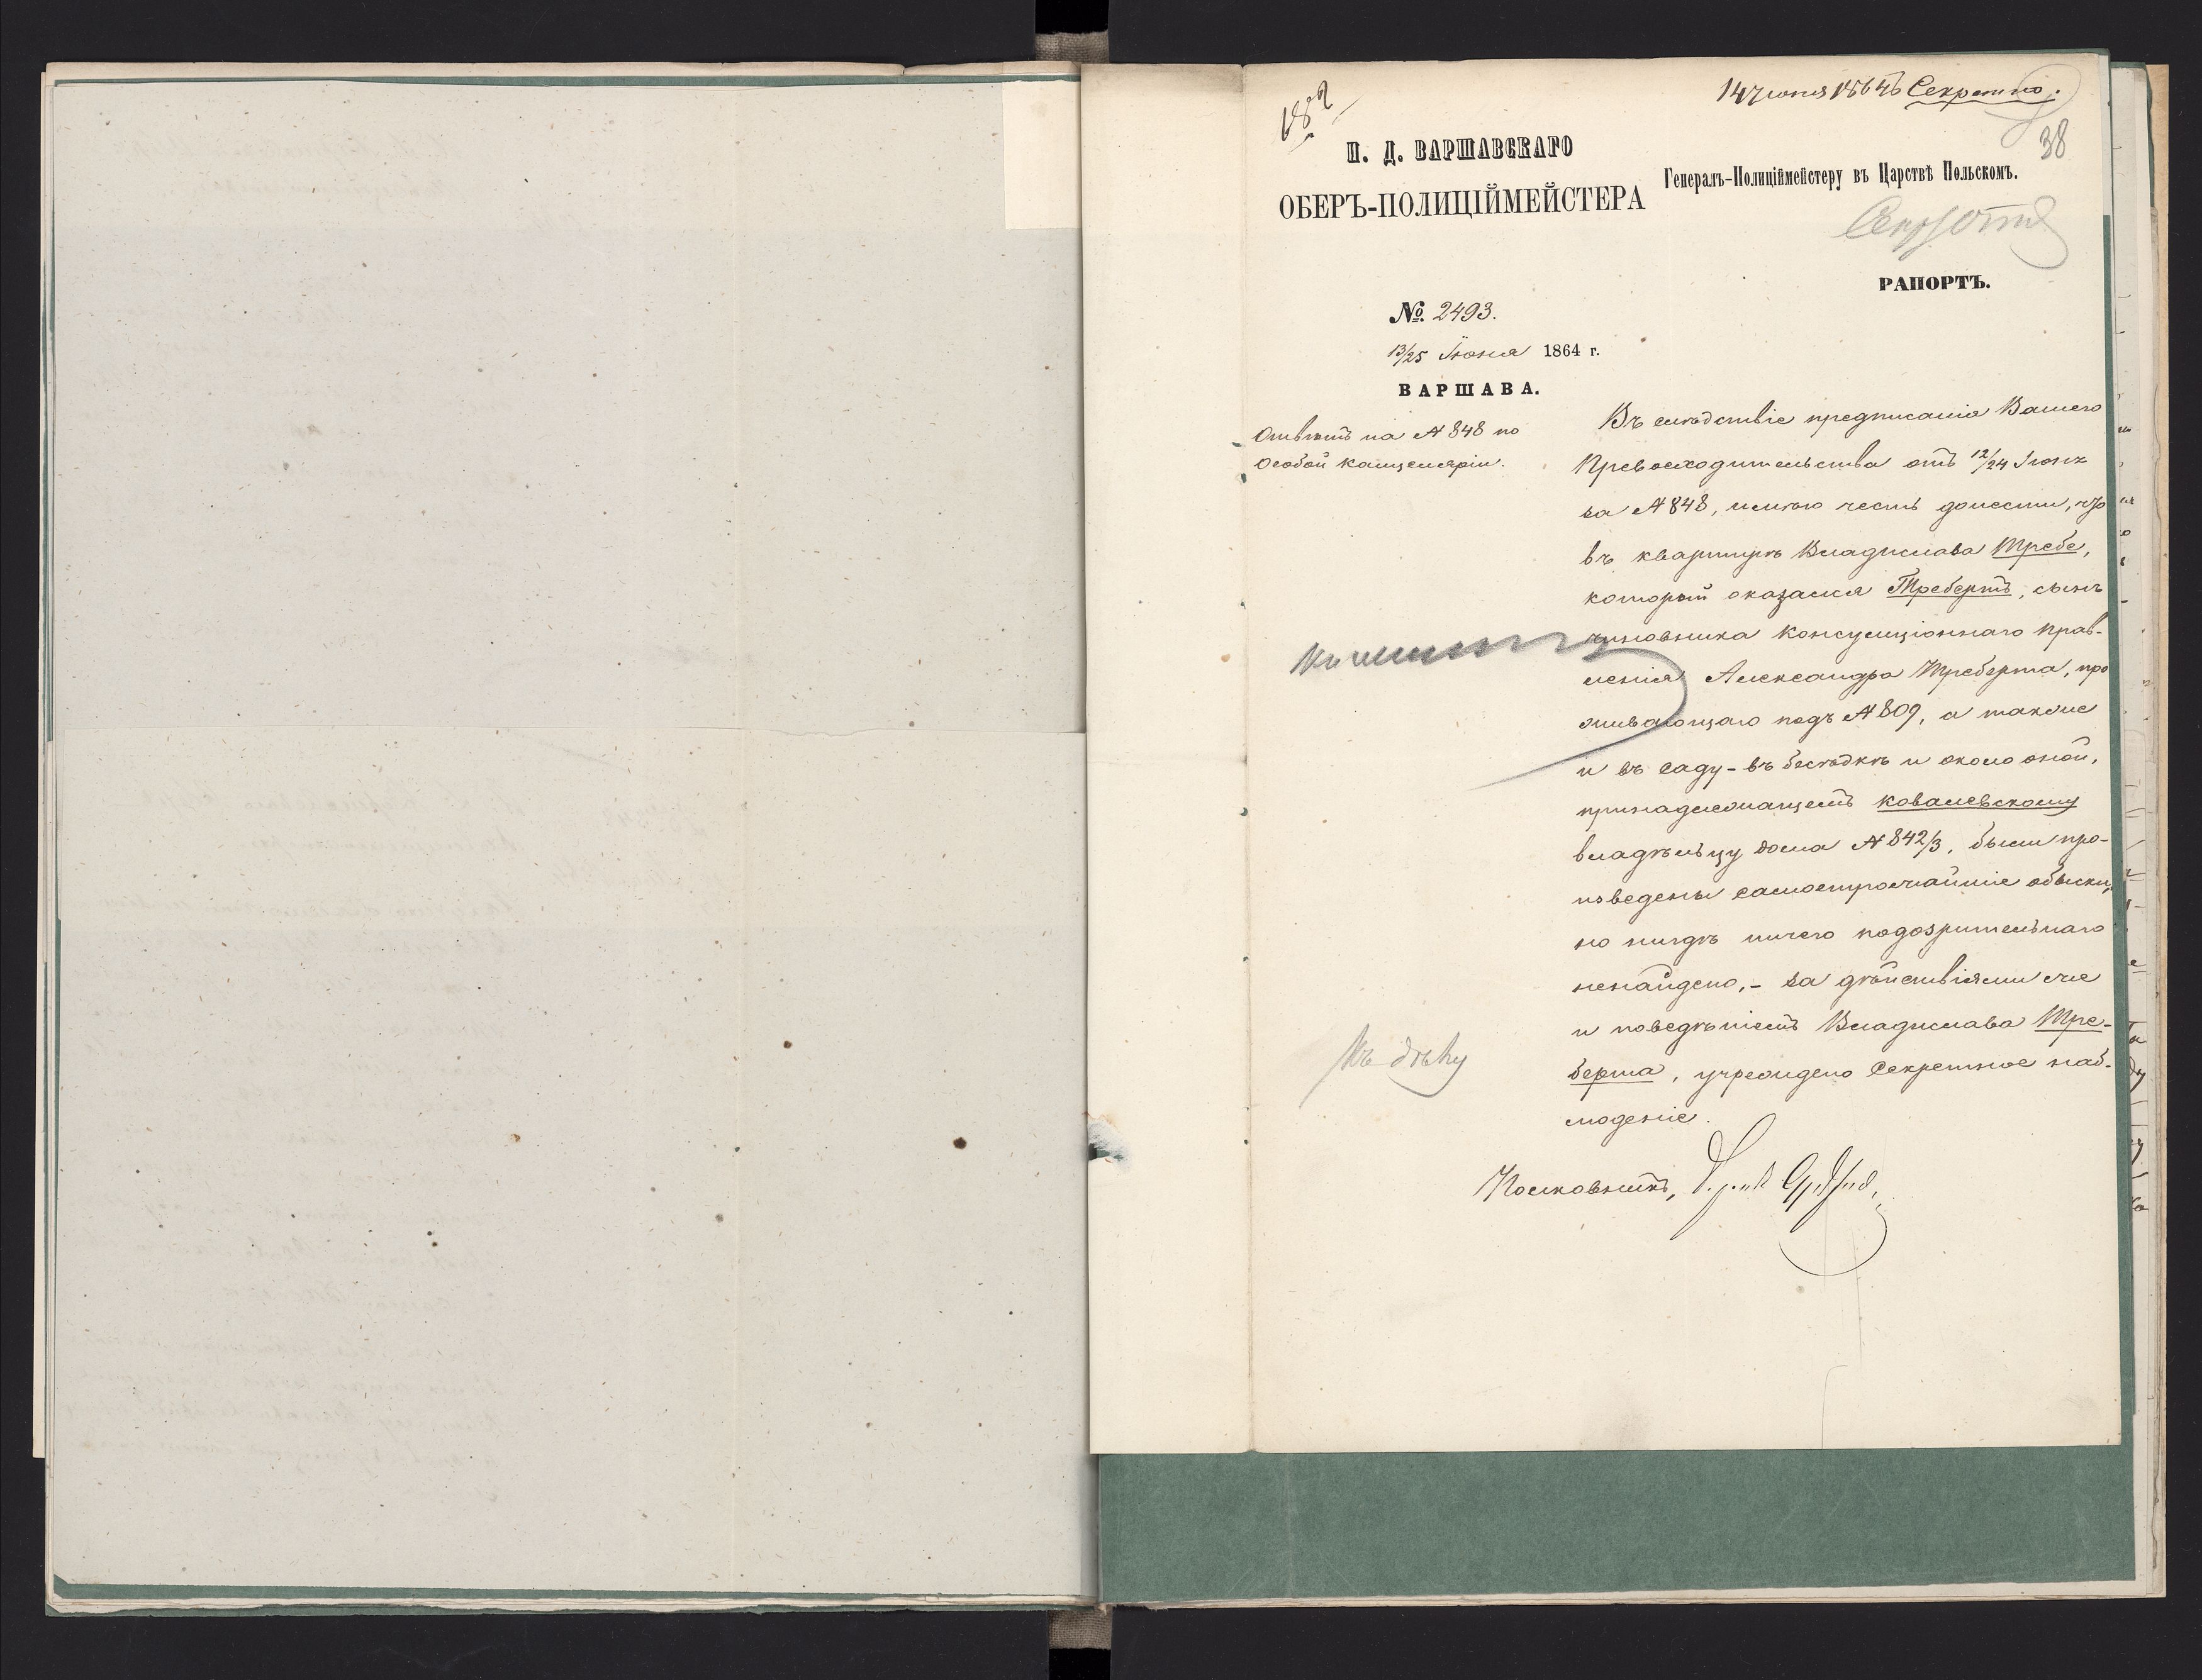 14 Июня 1864 Секретно.
38
И. Д. ВАРШАВСКАГО
ОБЕРЪ-ПОЛИЦІЙМЕЙСТЕРА
Генералъ-Полиціймейстеру въ Царствѣ Польскомъ.
РАПОРТЪ.
№ 2493.
13/25 Іюня 1864 г.
ВАРШАВА.
Отвѣтъ на № 848 по
Особой Канцеляріи.
Въ слѣдствіе предписанія Вашего
Превосходительства отъ 12/24 Іюня
за № 848, имѣю честь донести, что
въ квартирѣ Владислава Требе,
который оказался Требертъ, сынъ
чиновника Консумціоннаго прав-
ленія Александра Треберта, про
живающаго подъ № 809, а также
и въ саду - въ бесѣдкѣ и около оной,
принадлежащемъ Ковалевскому
владѣльцу дома № 842/3, были про-
изведены самострочайшіе обыски,
но нигдѣ ничего подозрительнаго
ненайдено, - за дѣйствіями же
и поведѣніемъ Владислава Тре-
берта, учреждено секретное наб-
люденіе.
Къ дѣлу
Полковникъ,